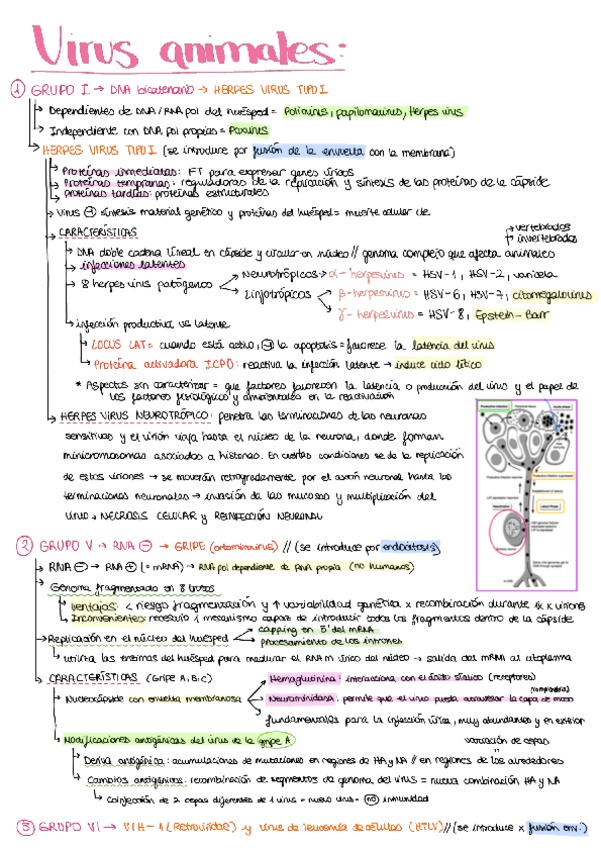 Virus animales:
① GRUPO I → DNA bicatenario → HERPES VIRUS TIPO I
→ Dependientes de DNA/RNA pol del huésped = Poliovirus, papilomavirus, Herpes virus
→ Independiente con DNA pol propias = Poxvirus
→ HERPES VIRUS TIPO I (se introduce por fusión de la envuelta con la membrana)
→ Proteínas inmediatas: FT para expresar genes víricos
→ Proteínas tempranas: reguladoras de la replicación y síntesis de las proteínas de la cápside
→ Proteínas tardías: proteínas estructurales
→ Virus ⊖ síntesis material genético y proteínas del huésped = muerte celular
→ CARACTERÍSTICAS
→ vertebrados
→ invertebrados
→ DNA doble cadena lineal en cápside y circular en núcleo // genoma complejo que afecta animales
→ infecciones latentes
→ 8 herpes virus patógenos
Neurotrópicos → α-herpesvirus = HSV-1, HSV-2, varicela
Linfotrópicos
β-herpesvirus = HSV-6, HSV-7, citomegalovirus
γ-herpesvirus = HSV-8, Epstein-Barr
→ infección productiva vs latente
→ LOCUS LAT = cuando está activo, ⊖ la apoptosis = favorece la latencia del virus
→ Proteína activadora ICP0: reactiva la infección latente → induce ciclo lítico
* Aspectos sin caracterizar = que factores favorecen la latencia o producción del virus y el papel de
los factores fisiológicos y ambientales en la reactivación
→ HERPES VIRUS NEUROTRÓPICO: penetra las terminaciones de las neuronas
sensitivas y el virión viaja hasta el núcleo de la neurona, donde forman
minicromosomas asociados a histonas. En ciertas condiciones se da la replicación
de estos viriones → se moverán retrogradamente por el axón neuronal hasta las
terminaciones neuronales → invasión de las mucosas y multiplicación del
virus → NECROSIS CELULAR y REINFECCIÓN NEURONAL
② GRUPO V → RNA ⊖ → GRIPE (ortomixovirus) // (se introduce por endocitosis)
→ RNA ⊖ → RNA ⊕ (= mRNA) → RNA pol dependiente de RNA propia (no humanos)
→ Genoma fragmentado en 8 trozos
→ Ventajas: < riesgo fragmentación y ↑ variabilidad genética x recombinación durante x viriones
→ Inconvenientes: necesario 1 mecanismo capaz de introducir todos los fragmentos dentro de la cápside
→ Replicación en el núcleo del huésped
capping en 5' del mRNA
procesamiento de los intrones
→ utiliza las enzimas del huésped para madurar el RNAm vírico del núcleo → salida del mRNA al citoplasma
→ CARACTERÍSTICAS (Gripe A, B, C)
→ Nucleocápside con envuelta membranosa
Hemaglutinina: interacciona con el ácido siálico (receptores)
Neuraminidasa: permite que el virus pueda atravesar la capa de moco
fundamentales para la infección vírica, muy abundantes y en exterior
→ Modificaciones antigénicas del virus de la gripe A
variación de cepas
→ Deriva antigénica: acumulaciones de mutaciones en regiones de HA y NA // en regiones de los alrededores
→ Cambios antigénicos: recombinación de segmentos de genoma del virus = nueva combinación HA y NA
→ Coinfección de 2 cepas diferentes de 1 virus = nuevo virus = no inmunidad
③ GRUPO VI → VIH-1 (Retroviridae) y virus de leucemia de células (HTLV) // (se introduce x fusión env.)